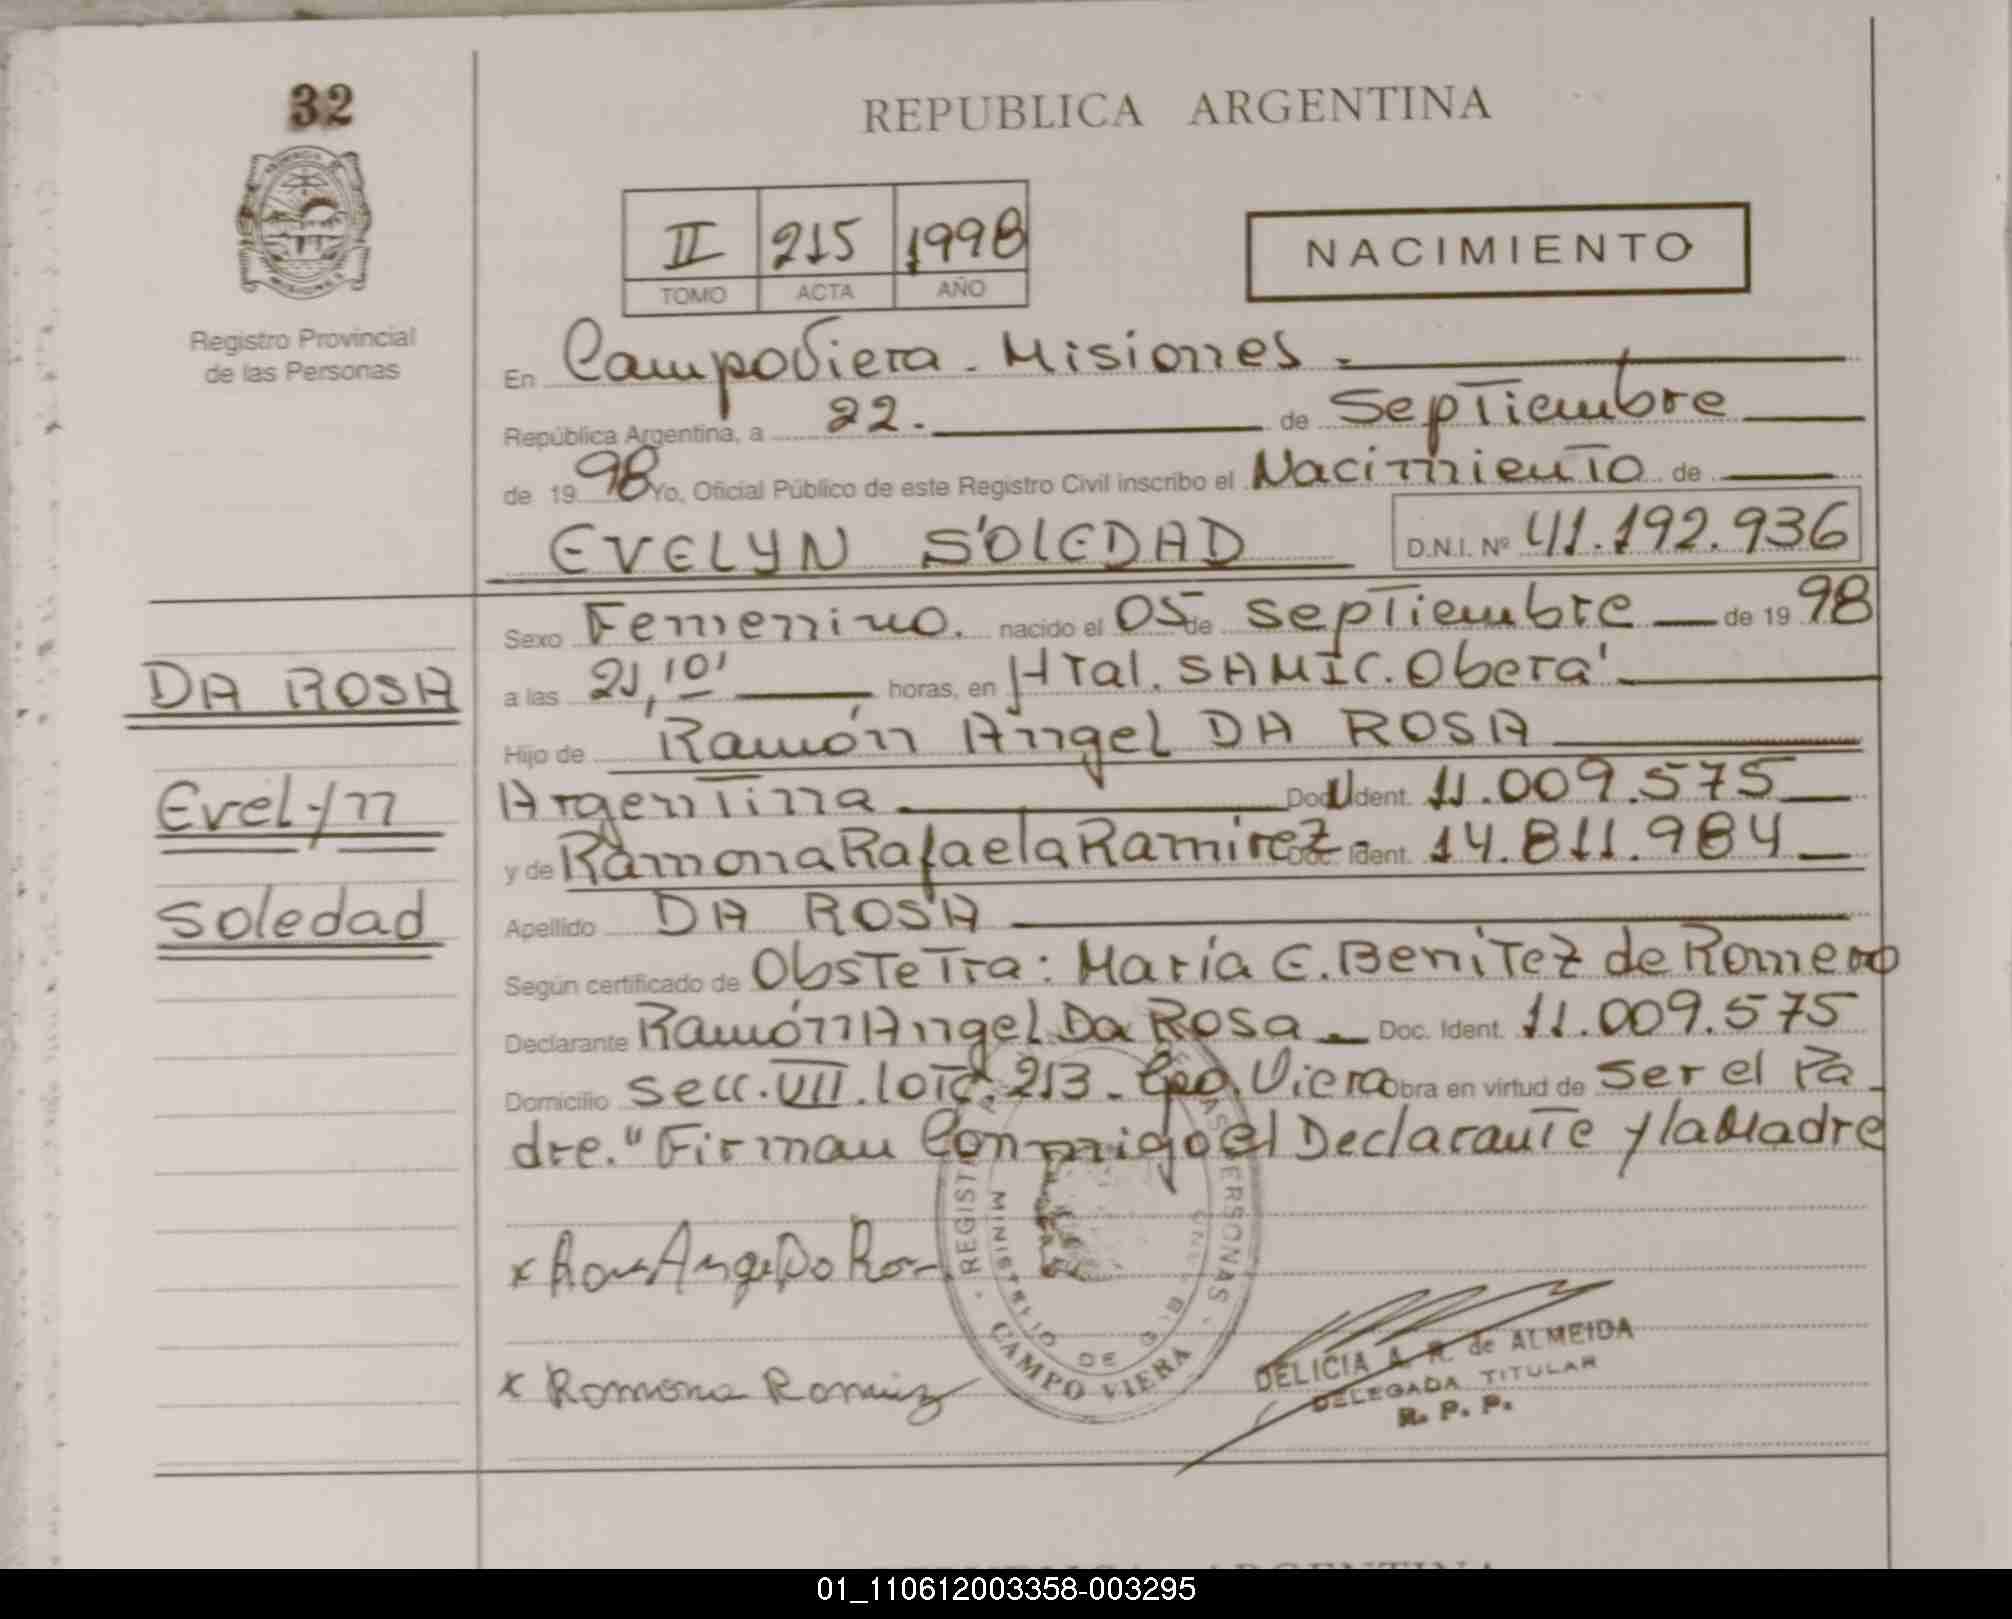 32
REPUBLICA ARGENTINA
II 215 1998
TOMO ACTA AÑO
NACIMIENTO
Registro Provincial
de las Personas
En Campo Viera - Misiones -
República Argentina, a 22. de Septiembre
de 1998 Yo, Oficial Público de este Registro Civil inscribo el Nacimiento de
EVELYN SOLEDAD D.N.I. Nº 41.192.936
Sexo Femenino. nacido el 05 de septiembre de 1998
a las 21,10' horas, en Htal. SAMIC. Oberá
Hijo de Ramón Angel DA ROSA
Argentina Doc. Ident. 11.009.575
y de Ramona Rafaela Ramirez - Doc. Ident. 14.811.984
Apellido DA ROSA
Según certificado de Obstetra: María E. Benitez de Romero
Declarante Ramón Angel Da Rosa - Doc. Ident. 11.009.575
Domicilio Secc. VII. lote. 213 - Cpo. Viera Obra en virtud de ser el Pa-
dre. "Firman Conmigo el Declarante y la Madre
DA ROSA
Evelyn
Soledad
x Ramona Ramirez
CAMPO VIERA
MINISTERIO DE
DELICIA A. R. de ALMEIDA
DELEGADA TITULAR
R. P. P.
01_110612003358-003295